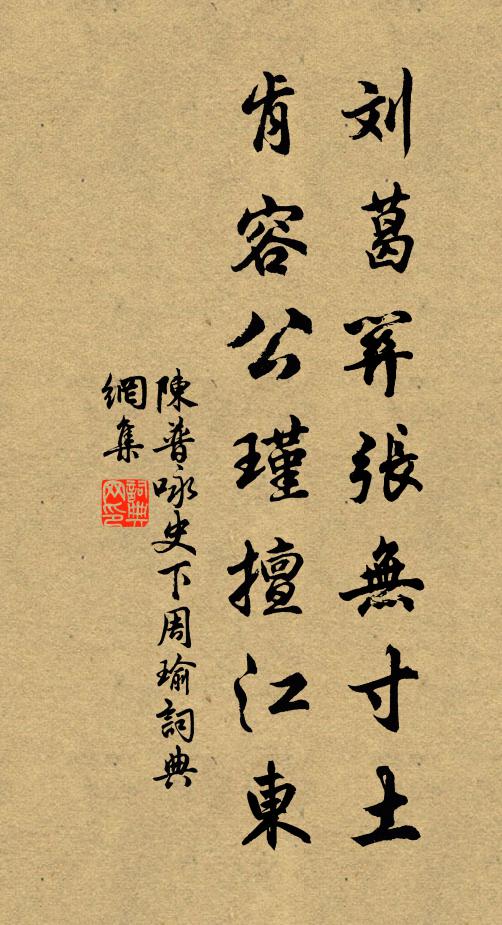 刘葛関張無寸土
肯容公瑾擅江東
陳普咏史下周瑜詞典
網集
詞典
网印